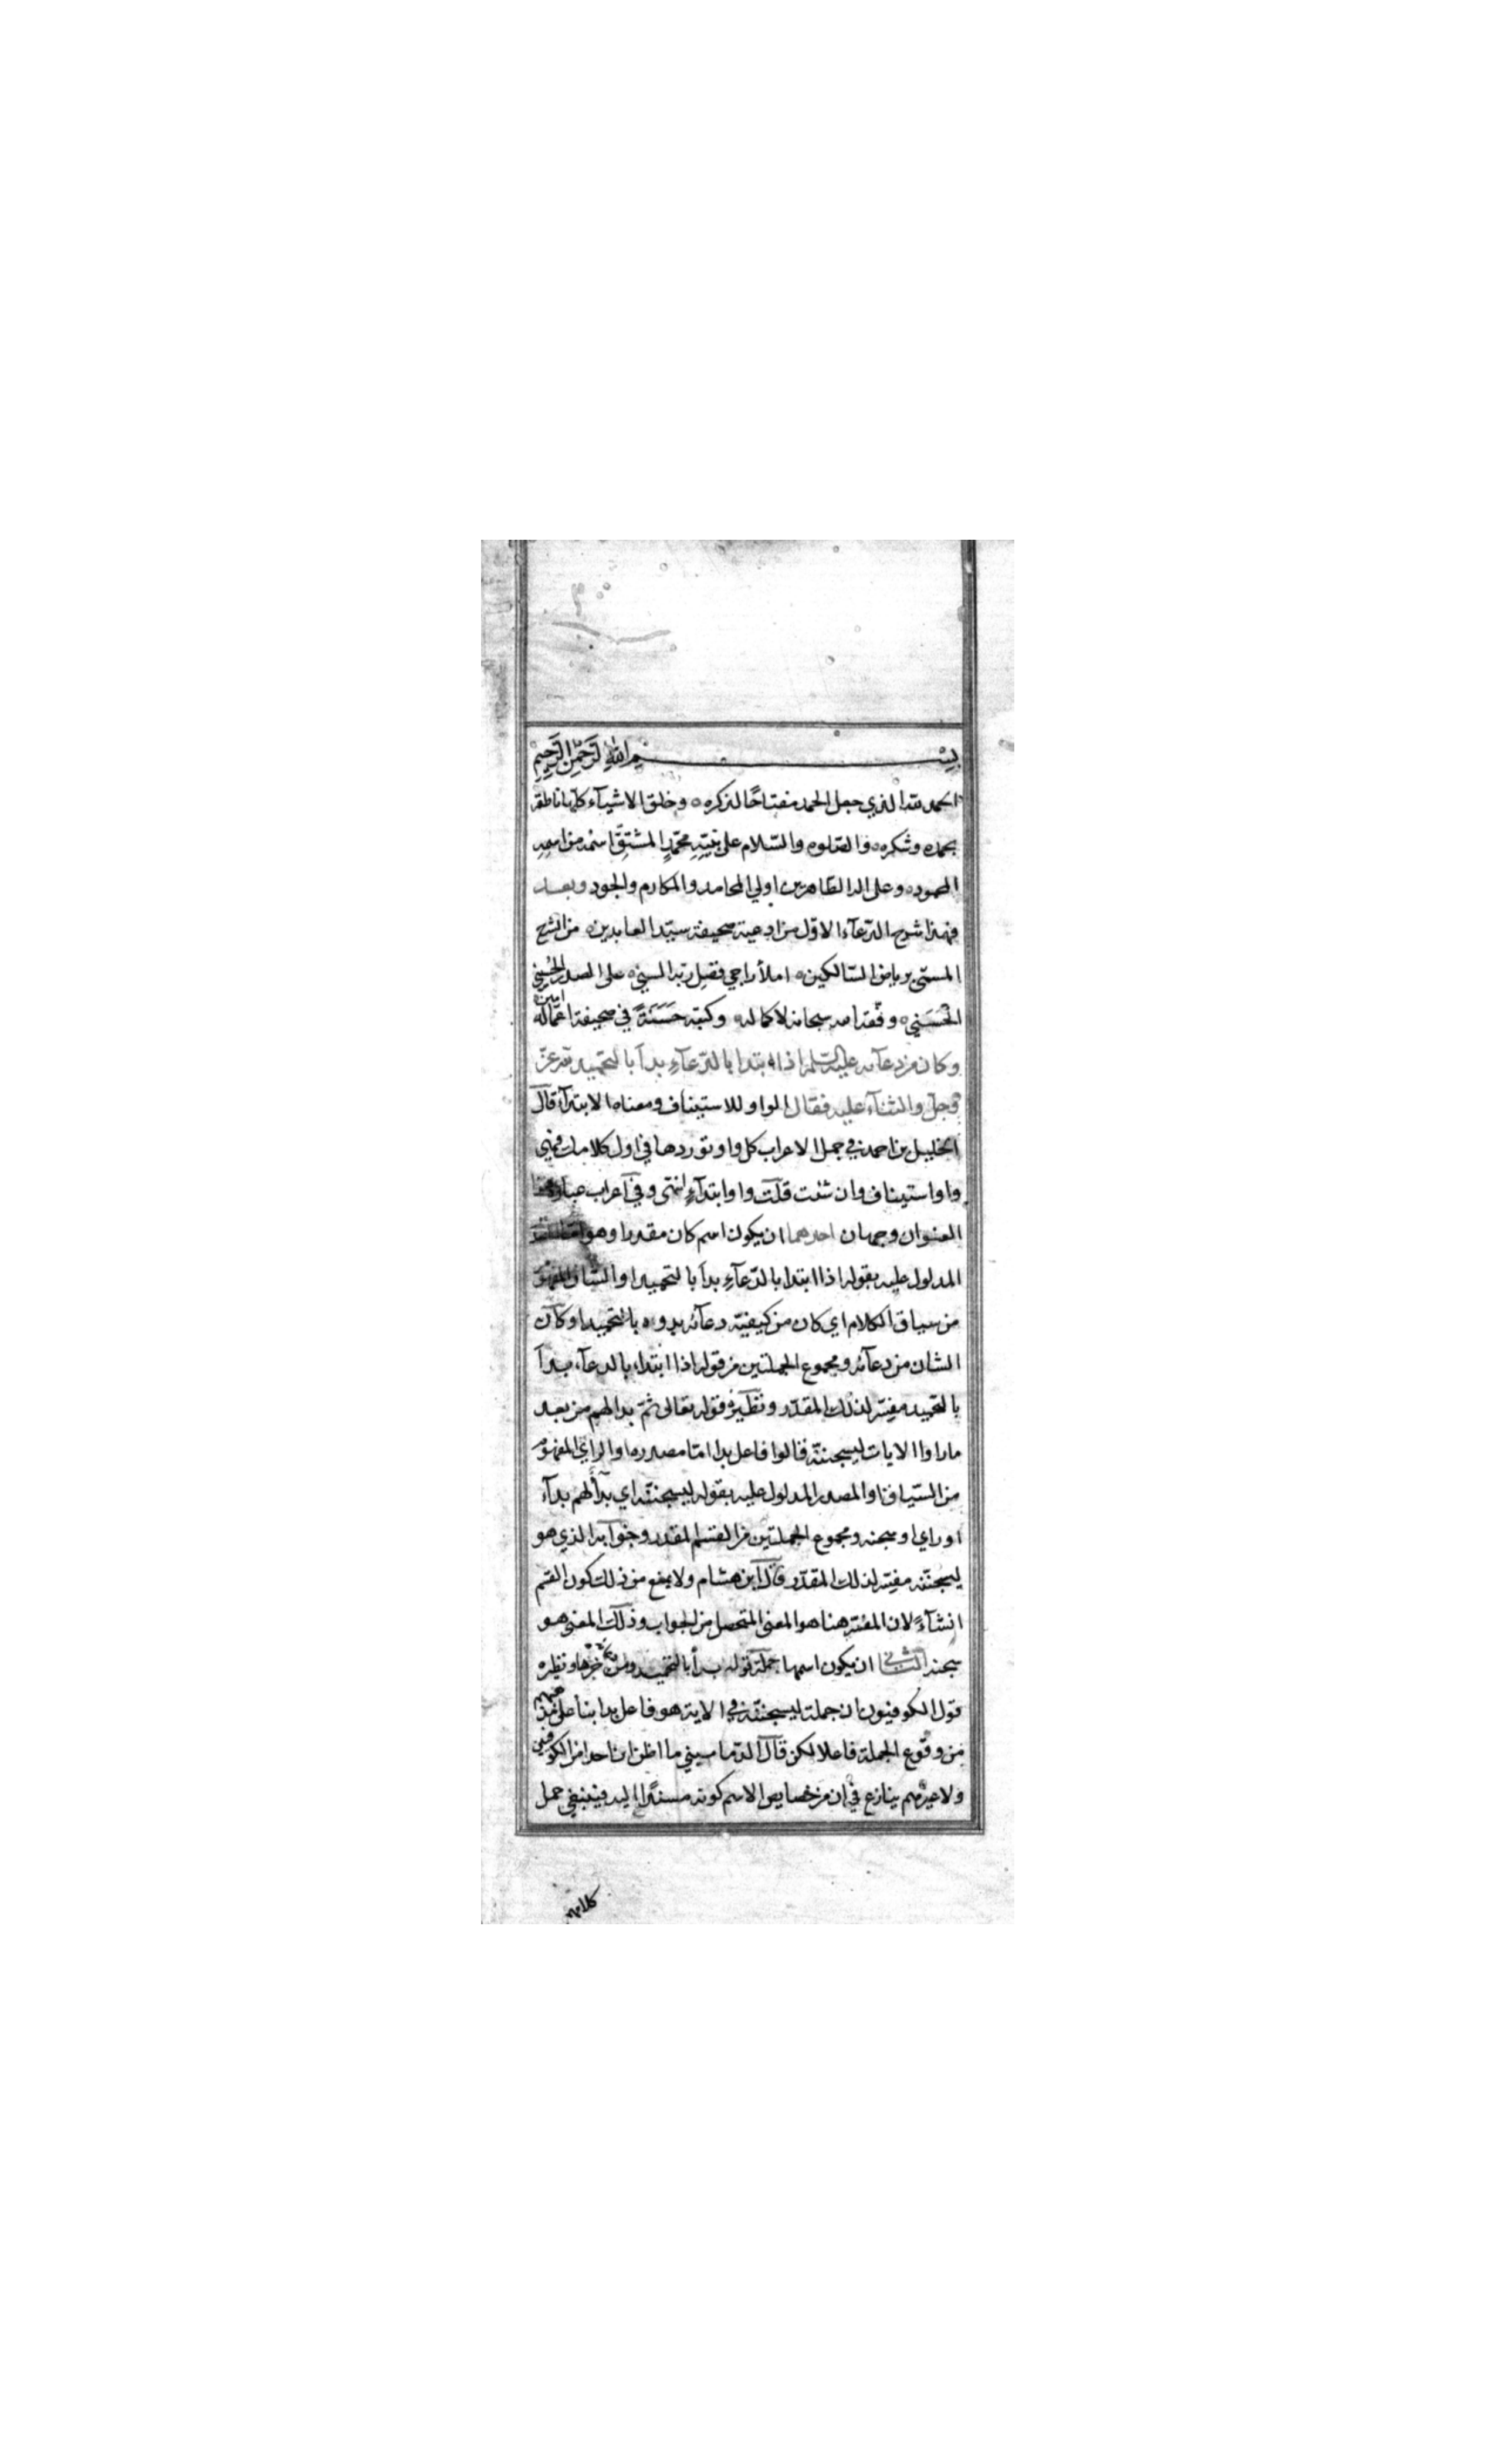 بسم الله الرحمن الرحيم
الحمد لله الذي جعل الحمد مفتاحًا لذكره وخلق الاشيآء كلّها ناطقة
بحمده وشكره والصّلوة والسّلام على نبيّه محمّدٍ المشتقّ اسمه من اسمه
المحمود وعلى اله الطّاهرين اولي المحامد والمكارم والجود وبعد
فهذا شرح الدّعآء الاوّل من ادعية صحيفة سيّد العابدين من الشرح
المسمّى برياض السّالكين املاء راجي فضل ربه السني على الصدر الحسيني
الحَسَني وفّقه الله سبحانه لاكماله وكتبه حَسَنَةً في صحيفة اعماله امين
وكان من دعآئه عليه السّلم اذا ابتدا بالدّعآءِ بدأ بالتحميد لله عزّ
وجلّ والثنآء عليه فقال الواو للاستيناف ومعناه الابتدآء قال
الخليل بن احمد في جمل الاعراب كل واو توردها في اول كلامك فهي
واو استيناف وان شئت قلت واو ابتدآءٍ انتهى وفي اعراب عبارة
العنوان وجهان احدهما ان يكون اسم كان مقدرا وهو
المدلول عليه بقوله اذا ابتدا بالدّعآءِ بدأ بالتحميد او الشان المفهوم
من سياق الكلام اي كان من كيفيّة دعآئه بدوه بالتحميد او كان
الشان من دعآئه ومجموع الجملتين من قوله اذا ابتداء بالدعآء بدأ
بالتحميد مفسّر لذلك المقدّر ونظيره قوله تعالى ثمّ بدا لهم من بعد
ما راوا الايات ليسجننّه قالوا فاعل بدا امّا مصدره او الراي المفهوم
من السّياق او المصدر المدلول عليه بقوله ليسجننّه اي بدا لهم بدآء
او راي او سجنه ومجموع الجملتين من القسم المقدر وجوابه الذي هو
ليسجننّه مفسّر لذلك المقدّر قال ابن هشام ولا يمنع من ذلك كون القسم
انشآءً لان المفسّر هنا هو المعنى المتحصل من الجواب وذلك المعنى هو
سجنه الثاني ان يكون اسمها جملة قوله بدأ بالتحميد ومن دعآئه خبرها ونظيره
قول الكوفيون ان جملة ليسجننّه في الاية هو فاعل بدا بنآءً على مذهبهم
من وقوع الجملة فاعلا لكن قال الدّماميني ما اظن ان احدا من الكوفيين
ولا غيرهم ينازع في ان من خصايص الاسم كونه مسندًا اليه فينبغي حمل
كلامهم